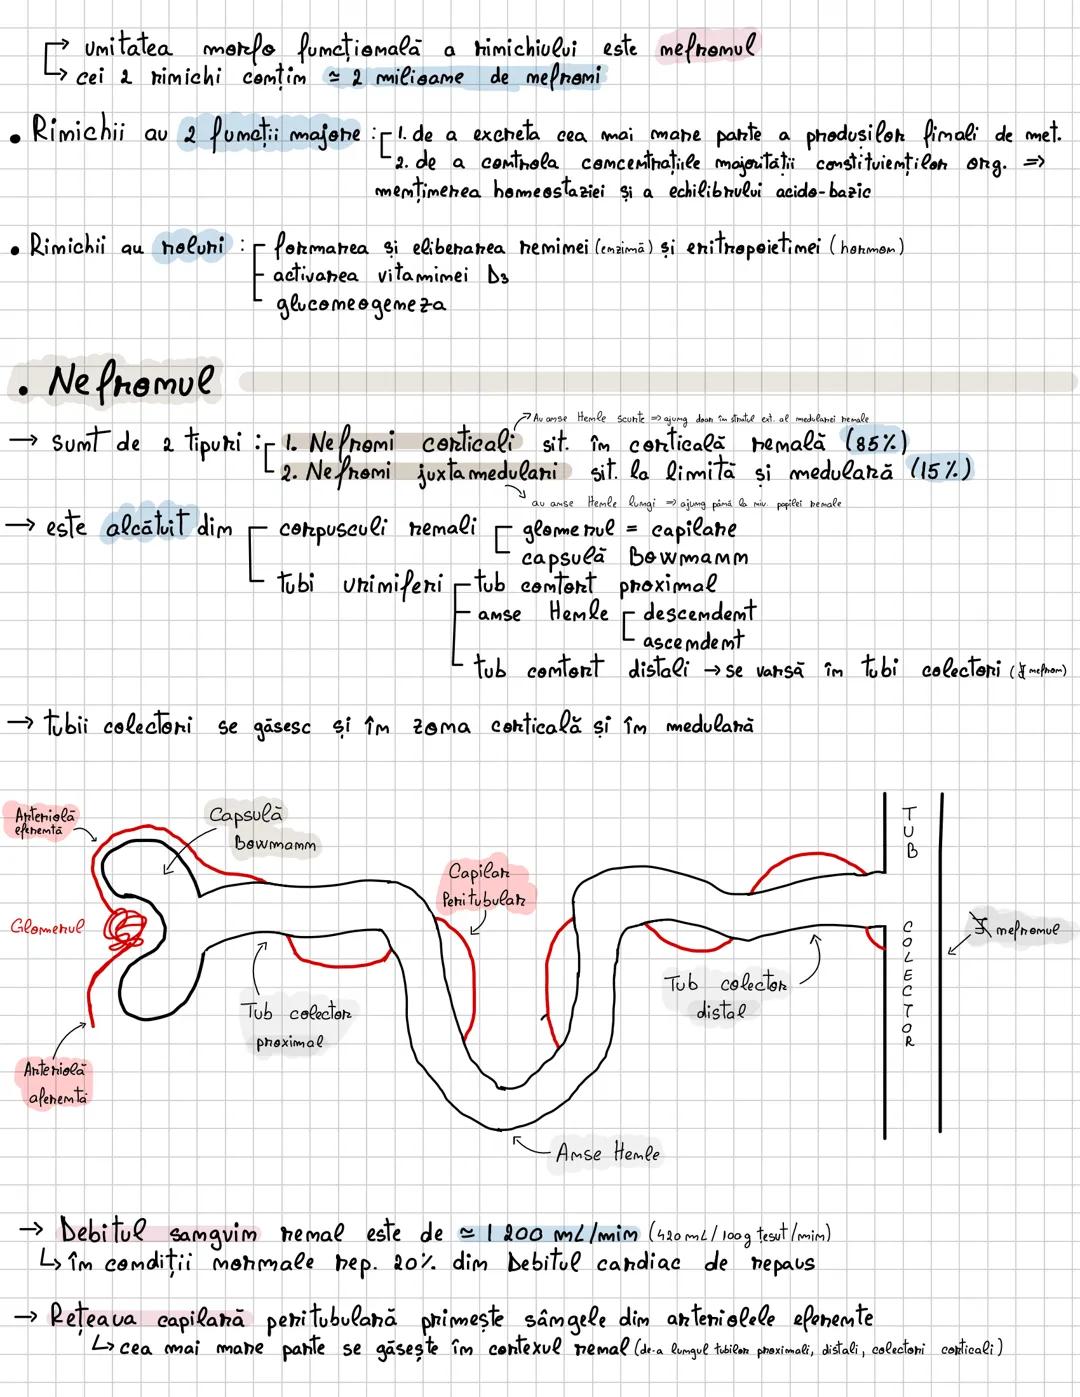 → unitatea morfo funcțională a rinichiului este nefronul
→ cei 2 rinichi conțin ≃ 2 milioane de nefroni
• Rinichii au 2 funcții majore : 1. de a excreta cea mai mare parte a produșilor finali de met.
2. de a controla concentrațiile majorității constituienților org. ⇒
menținerea homeostaziei și a echilibrului acido-bazic
• Rinichii au roluri : formarea și eliberarea reninei (enzimă) și eritropoietinei (hormon)
activarea vitaminei D3
gluconeogeneza
• Nefronul
→ Au anse Henle scurte ⇒ ajung doar în stratul ext. al medularei renale
→ sunt de 2 tipuri : 1. Nefroni corticali sit. în corticală renală (85%)
2. Nefroni juxtamedulari sit. la limită și medulară (15%)
au anse Henle lungi ⇒ ajung până la niv. papilei renale
→ este alcătuit din corpusculi renali glomerul = capilare
capsulă Bowmann
tubi uriniferi tub contort proximal
anse Henle descendent
ascendent
tub contort distali → se varsă în tubi colectori (∄ nefron)
→ tubii colectori se găsesc și în zona corticală și în medulară
Arteriolă
eferentă
Capsulă
Bowmann
TUB COLECTOR
Capilar
Peritubular
Glomerul
∄ nefronul
Tub colector
distal
Tub colector
proximal
Arteriolă
aferentă
Anse Henle
→ Debitul sangvin renal este de ≃ 1 200 mL/min (420 mL/100g țesut/min)
↳ în condiții normale rep. 20% din Debitul cardiac de repaus
→ Rețeaua capilară peritubulară primește sângele din arteriolele eferente
↳ cea mai mare parte se găsește în contexul renal (de-a lungul tubilor proximali, distali, colectori corticali)